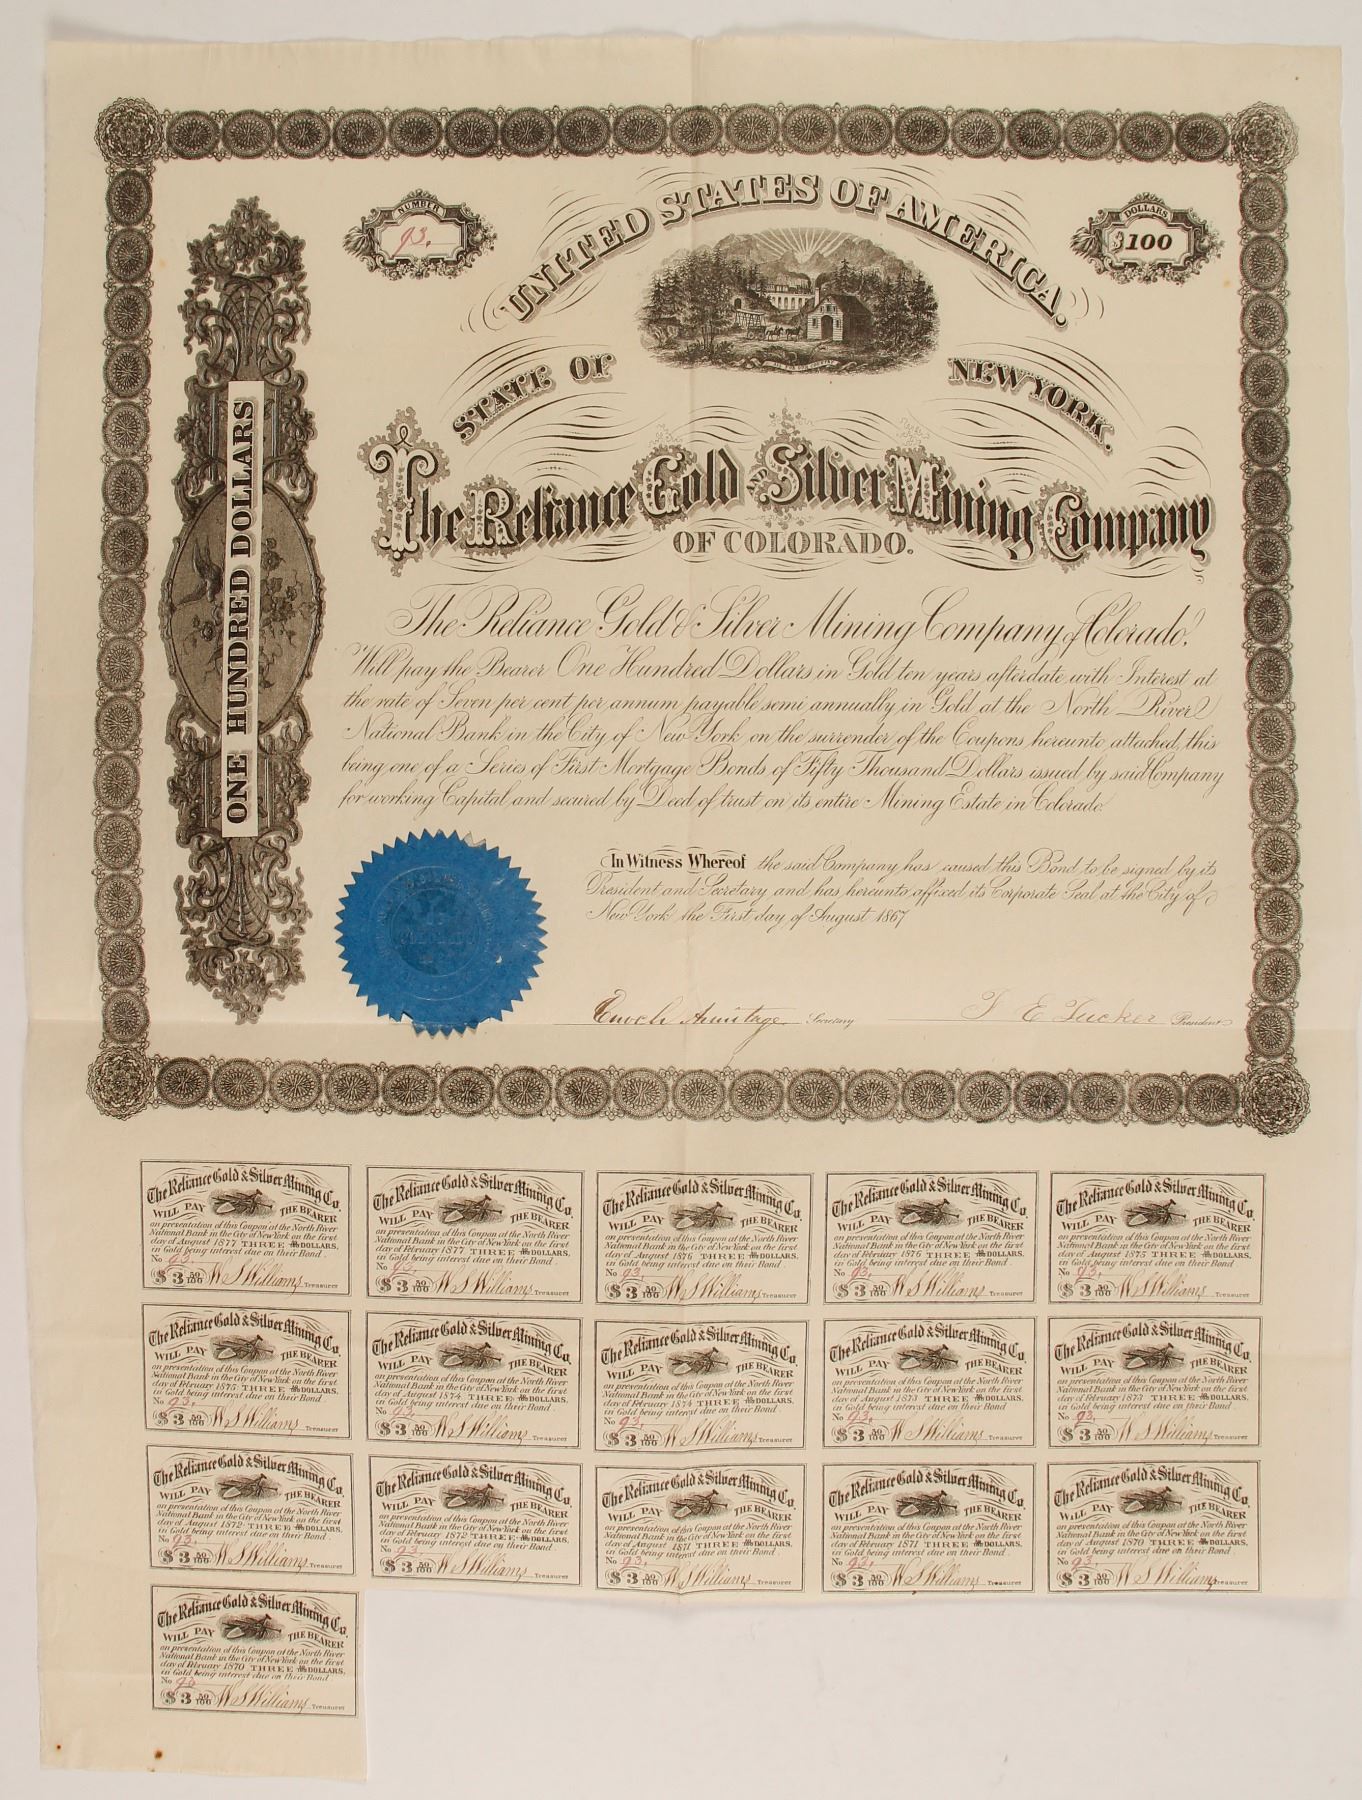 NUMBER
93.
DOLLARS
$100
UNITED STATES OF AMERICA.
STATE OF NEW YORK.
The Reliance Gold AND Silver Mining Company
OF COLORADO.
ONE HUNDRED DOLLARS
The Reliance Gold & Silver Mining Company of Colorado,
Will pay the Bearer One Hundred Dollars in Gold ten years after date with Interest at
the rate of Seven per cent per annum payable semi annually, in Gold at the North River
National Bank in the City of New York on the surrender of the Coupons hereunto attached, this
being one of a Series of First Mortgage Bonds of Fifty Thousand Dollars issued by said Company
for working Capital and secured by Deed of trust on its entire Mining Estate in Colorado.
In Witness Whereof the said Company has caused this Bond to be signed by its
President and Secretary and has hereunto affixed its Corporate Seal at the City of
New York the First day of August 1867
COLORADO
Enoch Armitage Secretary
T E Tucker President
The Reliance Gold & Silver Mining Co.
WILL PAY THE BEARER
on presentation of this Coupon at the North River
National Bank in the City of New York on the first
day of August 1877 THREE 50/100 DOLLARS,
in Gold being interest due on their Bond.
No 93.
$3 50/100 W S Williams Treasurer
The Reliance Gold & Silver Mining Co.
WILL PAY THE BEARER
on presentation of this Coupon at the North River
National Bank in the City of New York on the first
day of February 1877 THREE 50/100 DOLLARS,
in Gold being interest due on their Bond.
No 93.
$3 50/100 W S Williams Treasurer
The Reliance Gold & Silver Mining Co.
WILL PAY THE BEARER
on presentation of this Coupon at the North River
National Bank in the City of New York on the first
day of August 1876 THREE 50/100 DOLLARS,
in Gold being interest due on their Bond.
No 93.
$3 50/100 W S Williams Treasurer
The Reliance Gold & Silver Mining Co.
WILL PAY THE BEARER
on presentation of this Coupon at the North River
National Bank in the City of New York on the first
day of February 1876 THREE 50/100 DOLLARS,
in Gold being interest due on their Bond.
No 93.
$3 50/100 W S Williams Treasurer
The Reliance Gold & Silver Mining Co.
WILL PAY THE BEARER
on presentation of this Coupon at the North River
National Bank in the City of New York on the first
day of August 1875 THREE 50/100 DOLLARS,
in Gold being interest due on their Bond.
No 93.
$3 50/100 W S Williams Treasurer
The Reliance Gold & Silver Mining Co.
WILL PAY THE BEARER
on presentation of this Coupon at the North River
National Bank in the City of New York on the first
day of February 1875 THREE 50/100 DOLLARS,
in Gold being interest due on their Bond.
No 93.
$3 50/100 W S Williams Treasurer
The Reliance Gold & Silver Mining Co.
WILL PAY THE BEARER
on presentation of this Coupon at the North River
National Bank in the City of New York on the first
day of August 1874 THREE 50/100 DOLLARS,
in Gold being interest due on their Bond.
No 93.
$3 50/100 W S Williams Treasurer
The Reliance Gold & Silver Mining Co.
WILL PAY THE BEARER
on presentation of this Coupon at the North River
National Bank in the City of New York on the first
day of February 1874 THREE 50/100 DOLLARS,
in Gold being interest due on their Bond.
No 93.
$3 50/100 W S Williams Treasurer
The Reliance Gold & Silver Mining Co.
WILL PAY THE BEARER
on presentation of this Coupon at the North River
National Bank in the City of New York on the first
day of August 1873 THREE 50/100 DOLLARS,
in Gold being interest due on their Bond.
No 93.
$3 50/100 W S Williams Treasurer
The Reliance Gold & Silver Mining Co.
WILL PAY THE BEARER
on presentation of this Coupon at the North River
National Bank in the City of New York on the first
day of February 1873 THREE 50/100 DOLLARS,
in Gold being interest due on their Bond.
No 93.
$3 50/100 W S Williams Treasurer
The Reliance Gold & Silver Mining Co.
WILL PAY THE BEARER
on presentation of this Coupon at the North River
National Bank in the City of New York on the first
day of August 1872 THREE 50/100 DOLLARS,
in Gold being interest due on their Bond.
No 93.
$3 50/100 W S Williams Treasurer
The Reliance Gold & Silver Mining Co.
WILL PAY THE BEARER
on presentation of this Coupon at the North River
National Bank in the City of New York on the first
day of February 1872 THREE 50/100 DOLLARS,
in Gold being interest due on their Bond.
No 93.
$3 50/100 W S Williams Treasurer
The Reliance Gold & Silver Mining Co.
WILL PAY THE BEARER
on presentation of this Coupon at the North River
National Bank in the City of New York on the first
day of August 1871 THREE 50/100 DOLLARS,
in Gold being interest due on their Bond.
No 93.
$3 50/100 W S Williams Treasurer
The Reliance Gold & Silver Mining Co.
WILL PAY THE BEARER
on presentation of this Coupon at the North River
National Bank in the City of New York on the first
day of February 1871 THREE 50/100 DOLLARS,
in Gold being interest due on their Bond.
No 93.
$3 50/100 W S Williams Treasurer
The Reliance Gold & Silver Mining Co.
WILL PAY THE BEARER
on presentation of this Coupon at the North River
National Bank in the City of New York on the first
day of August 1870 THREE 50/100 DOLLARS,
in Gold being interest due on their Bond.
No 93.
$3 50/100 W S Williams Treasurer
The Reliance Gold & Silver Mining Co.
WILL PAY THE BEARER
on presentation of this Coupon at the North River
National Bank in the City of New York on the first
day of February 1870 THREE 50/100 DOLLARS,
in Gold being interest due on their Bond.
No 93
$3 50/100 W S Williams Treasurer